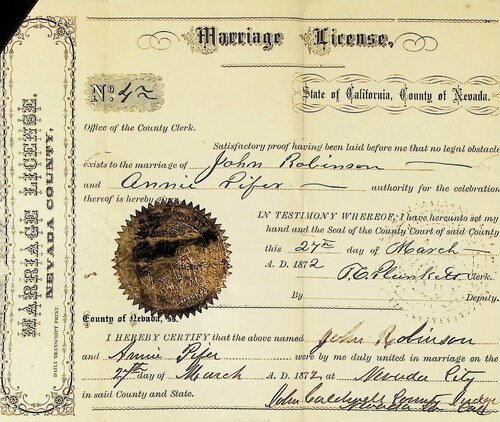 Marriage License,
No. 42
State of California, County of Nevada.
Office of the County Clerk.
Satisfactory proof having been laid before me that no legal obstacle
exists to the marriage of John Robinson
and Annie Pifer authority for the celebration
thereof is hereby
IN TESTIMONY WHEREOF, I have hereunto set my
hand and the Seal of the County Court of said County
this 27th day of March
A. D. 1872
T.C. Plunkett Clerk.
By Deputy.
County of Nevada, ss.
I HEREBY CERTIFY that the above named John Robinson
and Annie Pifer were by me duly united in marriage on the
27th day of March A. D. 1872, at Nevada City
in said County and State.
John Caldwell County Judge
Nevada Co Cal
MARRIAGE LICENSE.
NEVADA COUNTY.
DAILY TRANSCRIPT PRINT